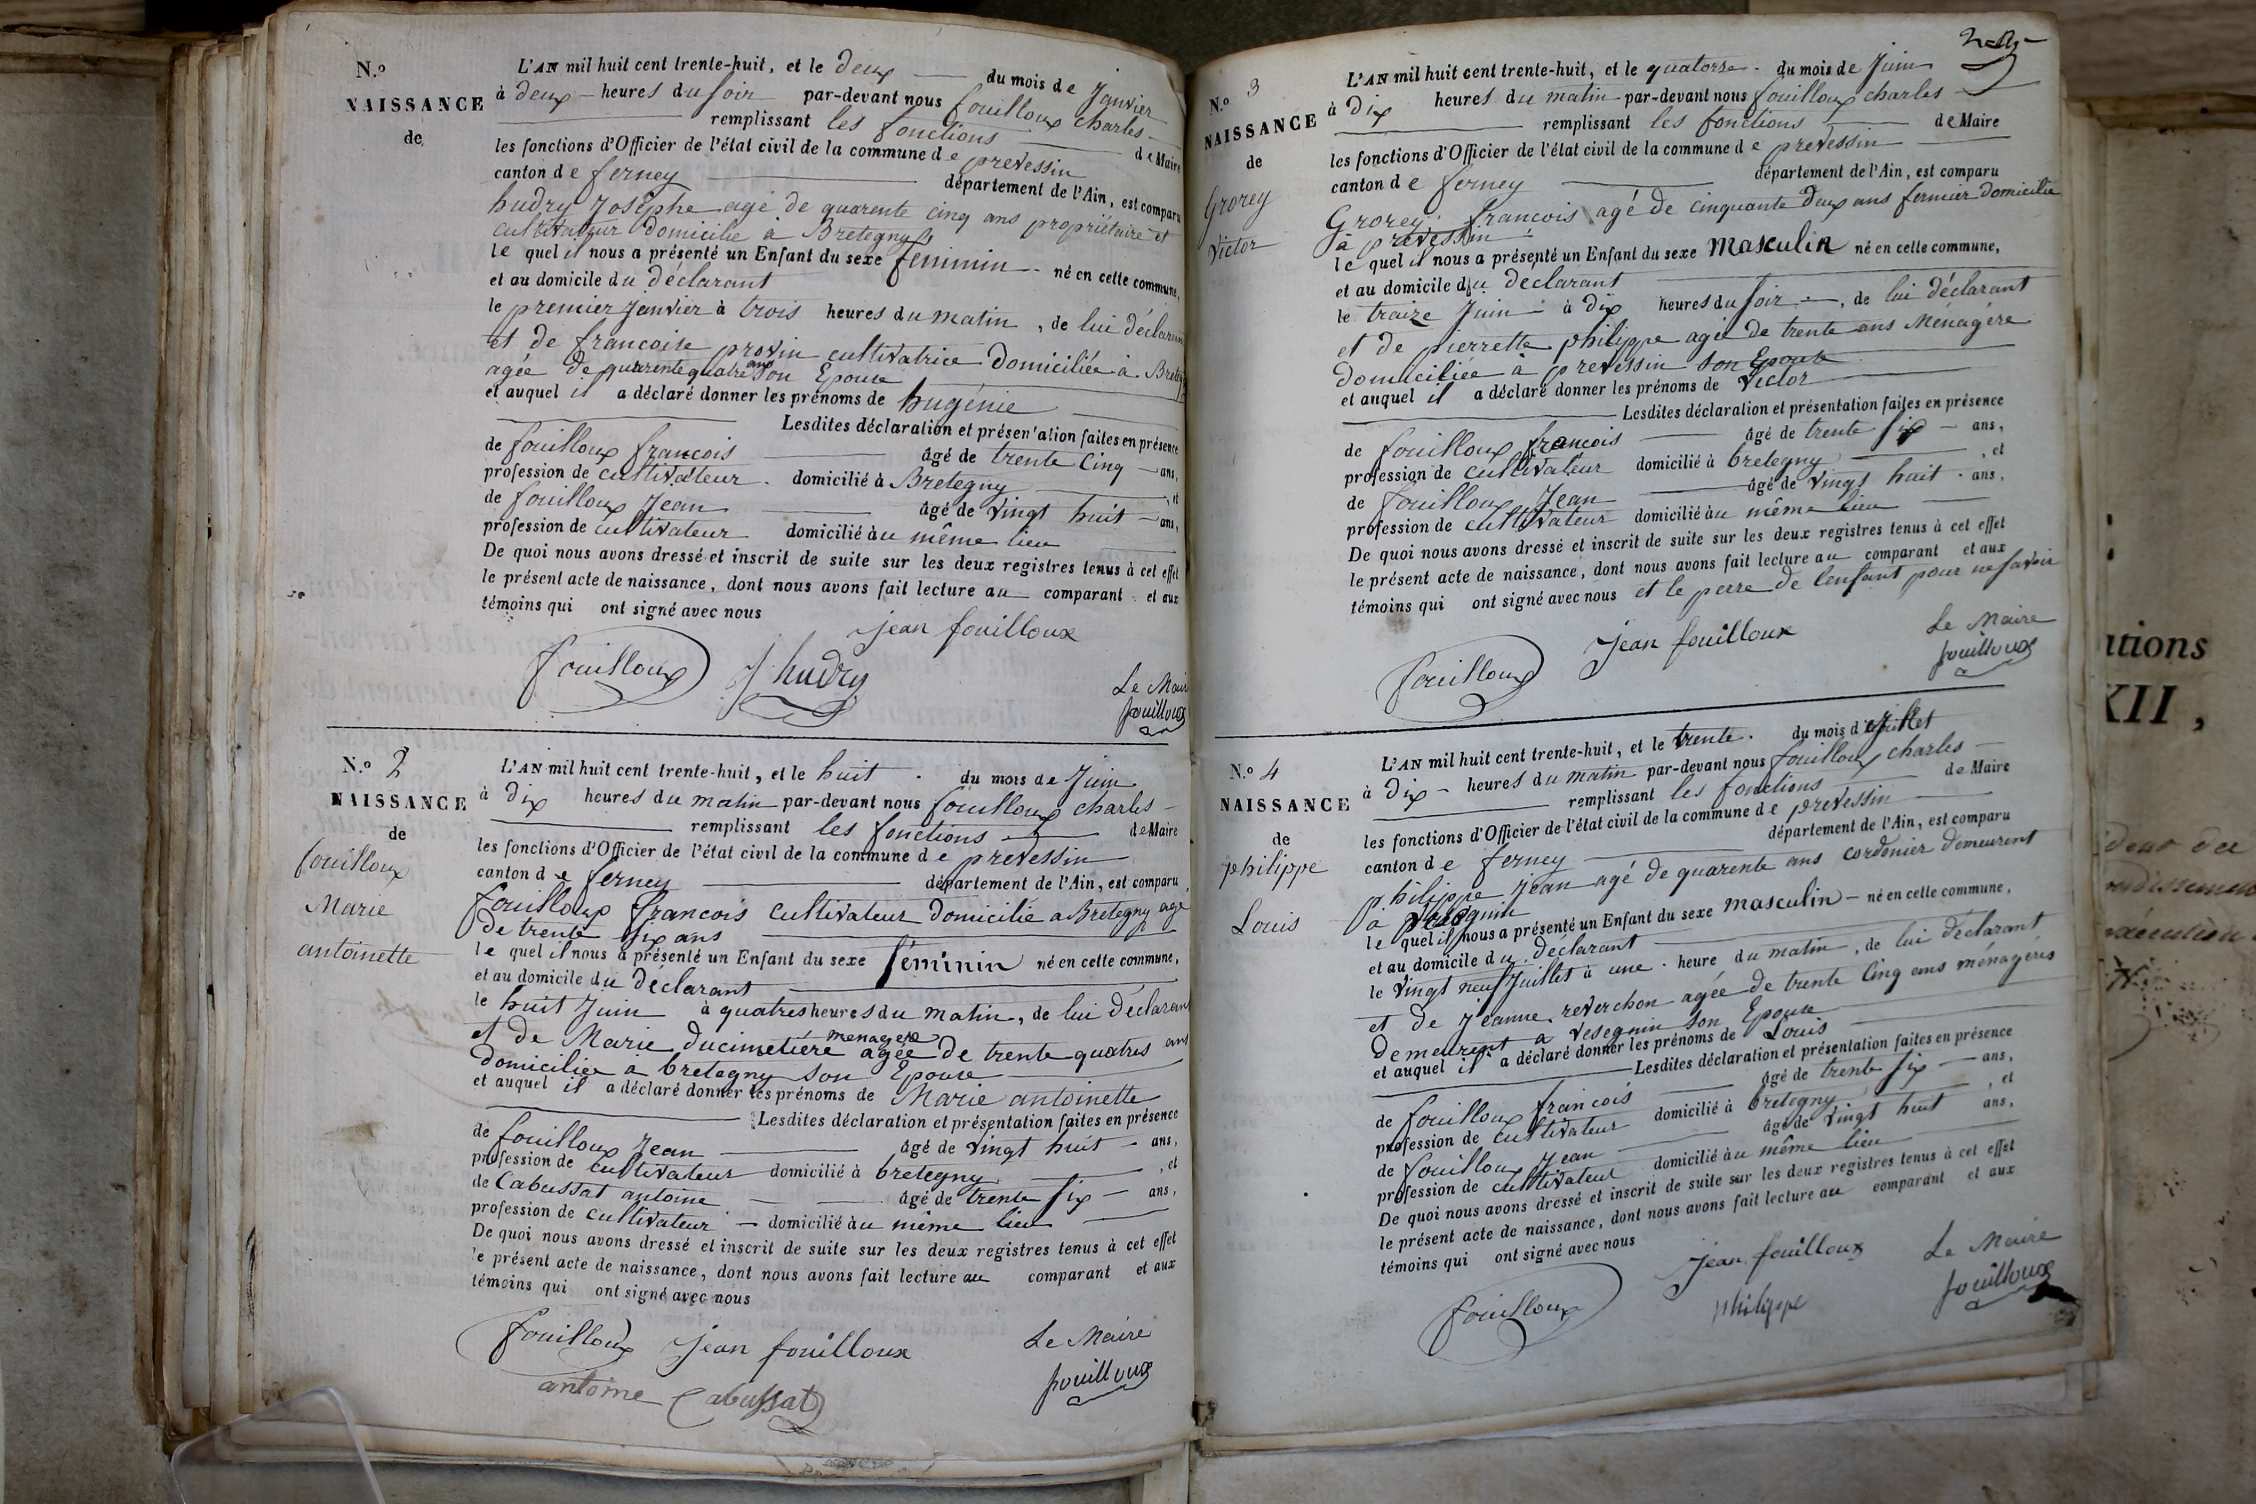 N.º
NAISSANCE
de
L'AN mil huit cent trente-huit, et le deux du mois de Janvier
à deux heures du soir par-devant nous fouilloux charles
remplissant les fonctions de Maire
les fonctions d'Officier de l'état civil de la commune de prevessin
canton de ferney département de l'Ain, est comparu
hudry Josephe agé de quarente cinq ans propriétaire et
cultivateur domicilié à Bretegny
le quel il nous a présenté un Enfant du sexe féminin né en cette commune,
et au domicile du déclarant
le premier Janvier à trois heures du matin, de lui déclarant
et de francoise provin cultivatrice domiciliée à Breteg
agée de quarente quatre ans son Epouse
et auquel il a déclaré donner les prénoms de hugénie
Lesdites déclaration et présentation faites en présence
de fouilloux francois âgé de trente cinq ans,
profession de cultivateur domicilié à Bretegny, et
de fouilloux Jean âgé de vingt huit ans,
profession de cultivateur domicilié au même lieu
De quoi nous avons dressé et inscrit de suite sur les deux registres tenus à cet effet
le présent acte de naissance, dont nous avons fait lecture au comparant et aux
témoins qui ont signé avec nous
jean fouilloux
fouilloux J hudry
Le Maire
fouilloux
N.º 2
NAISSANCE
de
fouilloux
Marie
antoinette
L'AN mil huit cent trente-huit, et le huit du mois de Juin
à dix heures du matin par-devant nous fouilloux charles
remplissant les fonctions de Maire
les fonctions d'Officier de l'état civil de la commune de prevessin
canton de ferney département de l'Ain, est comparu
fouilloux francois cultivateur domicilié a Bretegny agé
de trente six ans
le quel il nous a présenté un Enfant du sexe féminin né en cette commune,
et au domicile du déclarant
le huit Juin à quatres heures du matin, de lui déclarant
et de Marie ducimetière menagere agée de trente quatres ans
domiciliée à bretegny son Epouse
et auquel il a déclaré donner les prénoms de Marie antoinette
Lesdites déclaration et présentation faites en présence
de fouilloux Jean âgé de vingt huit ans,
profession de cultivateur domicilié à bretegny, et
de Cabussat antoine âgé de trente six ans,
profession de cultivateur domicilié au même lieu
De quoi nous avons dressé et inscrit de suite sur les deux registres tenus à cet effet
le présent acte de naissance, dont nous avons fait lecture au comparant et aux
témoins qui ont signé avec nous
fouilloux jean fouilloux Le Maire
antoine Cabussat fouilloux
N.º 3
NAISSANCE
de
Grorey
Victor
L'AN mil huit cent trente-huit, et le quatorse du mois de Juin
à dix heures du matin par-devant nous fouilloux charles
remplissant les fonctions de Maire
les fonctions d'Officier de l'état civil de la commune de prevessin
canton de ferney département de l'Ain, est comparu
Grorey francois agé de cinquante deux ans fermier domicilié
à prevessin
le quel il nous a présenté un Enfant du sexe Masculin né en cette commune,
et au domicile du déclarant
le traize Juin à dix heures du soir, de lui déclarant
et de pierrette philippe agée de trente ans Ménagère
domiciliée à prevessin son Epouse
et auquel il a déclaré donner les prénoms de Victor
Lesdites déclaration et présentation faites en présence
de fouilloux francois âgé de trente six ans,
profession de cultivateur domicilié à bretegny, et
de fouilloux Jean âgé de vingt huit ans,
profession de cultivateur domicilié au même lieu
De quoi nous avons dressé et inscrit de suite sur les deux registres tenus à cet effet
le présent acte de naissance, dont nous avons fait lecture au comparant et aux
témoins qui ont signé avec nous et le perre de l'enfant pour ne savoir
fouilloux jean fouilloux Le Maire
fouilloux
N.º 4
NAISSANCE
de
philippe
Louis
L'AN mil huit cent trente-huit, et le trente du mois de Juillet
à dix heures du matin par-devant nous fouilloux charles
remplissant les fonctions de Maire
les fonctions d'Officier de l'état civil de la commune de prevessin
canton de ferney département de l'Ain, est comparu
philippe Jean agé de quarente ans cordonier demeurent
à
le quel il nous a présenté un Enfant du sexe masculin né en cette commune,
et au domicile du déclarant
le vingt neuf Juillet à une heure du matin, de lui déclarant
et de Jeanne reverchon agée de trente cinq ans ménagères
demeurent a Vesegnin son Epouse
et auquel il a déclaré donner les prénoms de Louis
Lesdites déclaration et présentation faites en présence
de fouilloux francois âgé de trente six ans,
profession de cultivateur domicilié à bretegny, et
de fouilloux Jean âgé de vingt huit ans,
profession de cultivateur domicilié au même lieu
De quoi nous avons dressé et inscrit de suite sur les deux registres tenus à cet effet
le présent acte de naissance, dont nous avons fait lecture au comparant et aux
témoins qui ont signé avec nous
fouilloux jean fouilloux Le Maire
philippe fouilloux
XII,